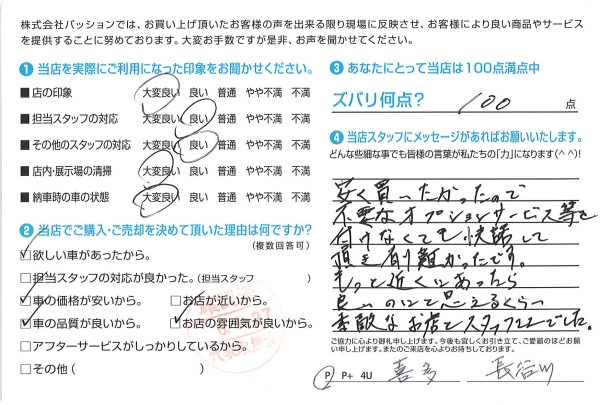 株式会社パッションでは、お買い上げ頂いたお客様の声を出来る限り現場に反映させ、お客様により良い商品やサービス
を提供することに努めております。大変お手数ですが是非、お声を聞かせてください。
❶ 当店を実際にご利用になった印象をお聞かせください。
■ 店の印象 大変良い 良い 普通 やや不満 不満
■ 担当スタッフの対応 大変良い 良い 普通 やや不満 不満
■ その他のスタッフの対応 大変良い 良い 普通 やや不満 不満
■ 店内・展示場の清掃 大変良い 良い 普通 やや不満 不満
■ 納車時の車の状態 大変良い 良い 普通 やや不満 不満
❷ 当店でご購入・ご売却を決めて頂いた理由は何ですか?
(複数回答可)
□欲しい車があったから。
□担当スタッフの対応が良かった。(担当スタッフ )
□車の価格が安いから。 □お店が近いから。
□車の品質が良いから。 □お店の雰囲気が良いから。
□アフターサービスがしっかりしているから。
□その他( )
❸ あなたにとって当店は100点満点中
ズバリ何点? 100 点
❹ 当店スタッフにメッセージがあればお願いいたします。
どんな些細な事でも皆様の言葉が私たちの「力」になります(^^)!
安く買いたかったので
不要なオプションサービス等を
付けなくても快諾して
頂き有難かったです。
もっと近くにあったら
良いのにと思えるくらい
素敵なお店とスタッフさんでした。
ご協力に心より御礼申し上げます。今後も宜しくお引き立て、ご愛顧のほどお願
い申し上げます。またのご来店を心よりお待ちしております。
P P+ 4U 喜多 長谷川